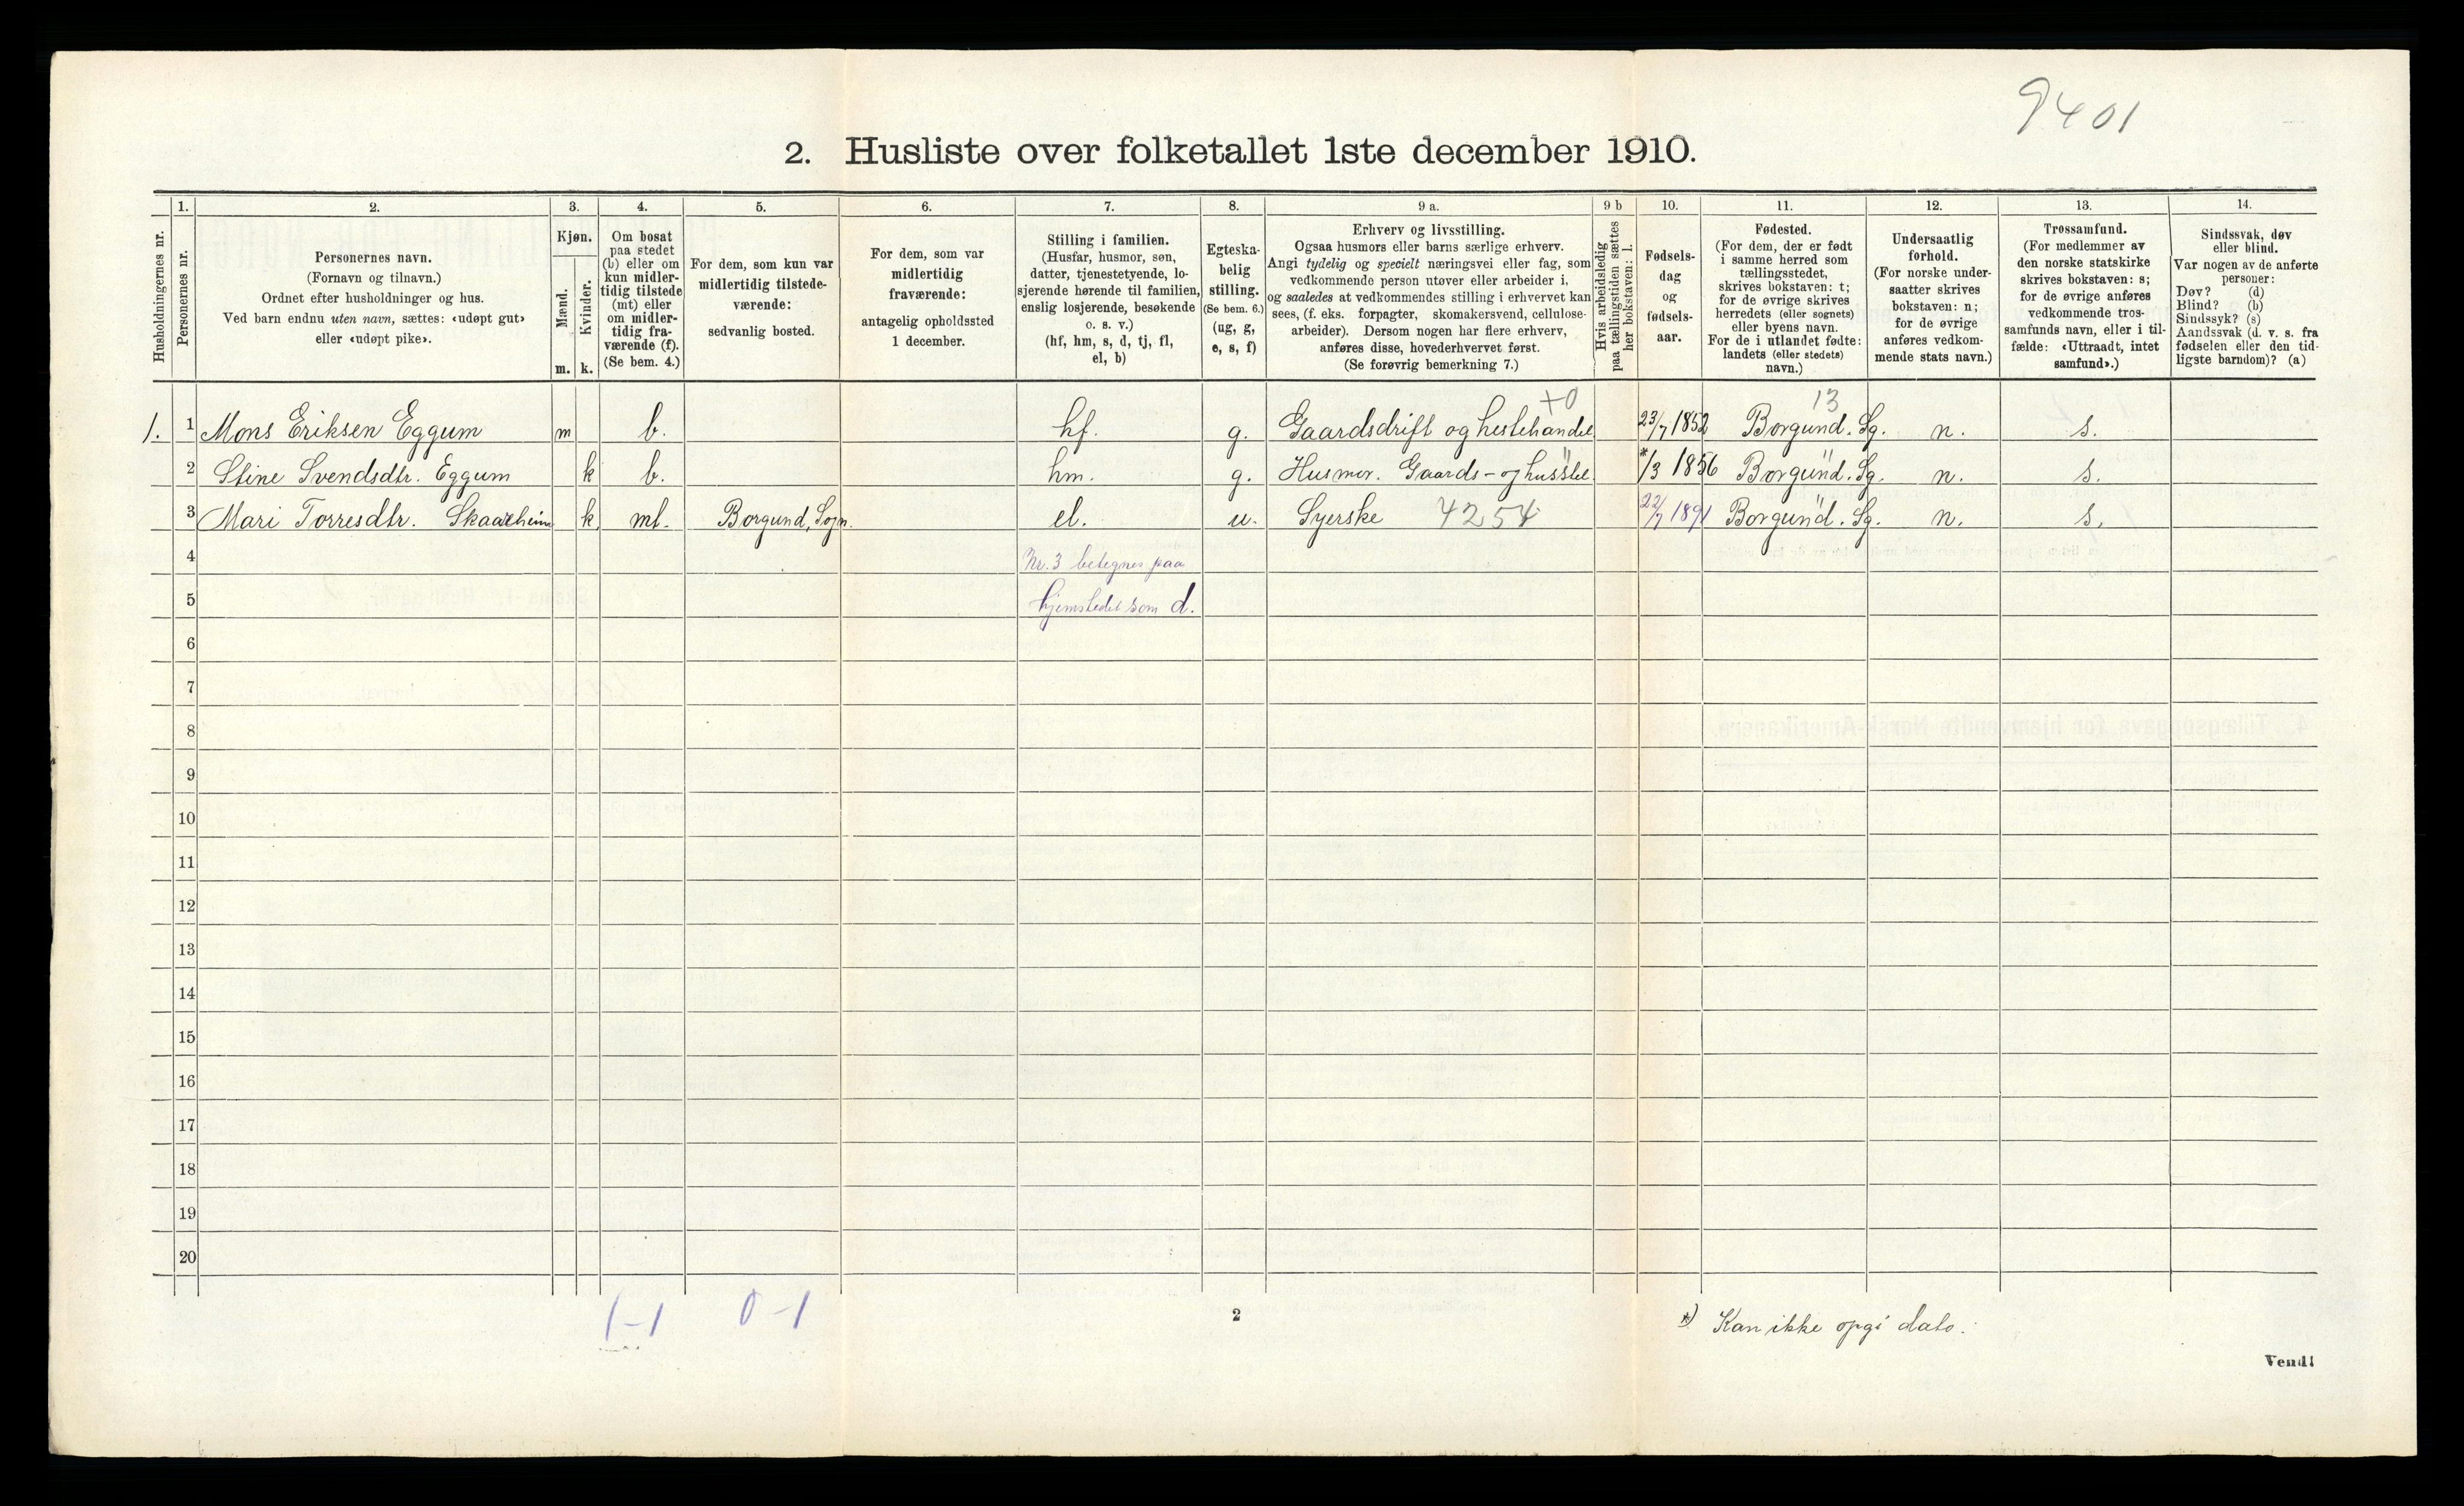 9401
2. Husliste over folketallet 1ste december 1910.
Husholdningernes nr.
1.
Personernes nr.
2.
Personernes navn.
(Fornavn og tilnavn.)
Ordnet efter husholdninger og hus.
Ved barn endnu uten navn, sættes: «udøpt gut»
eller «udøpt pike».
3.
Kjøn.
Mænd.
Kvinder.
m. k.
4.
Om bosat
paa stedet
(b) eller om
kun midler-
tidig tilstede
(mt) eller
om midler-
tidig fra-
værende (f).
(Se bem. 4.)
5.
For dem, som kun var
midlertidig tilstede-
værende:
sedvanlig bosted.
6.
For dem, som var
midlertidig
fraværende:
antagelig opholdssted
1 december.
7.
Stilling i familien.
(Husfar, husmor, søn,
datter, tjenestetyende, lo-
sjerende hørende til familien,
enslig losjerende, besøkende
o. s. v.)
(hf, hm, s, d, tj, fl,
el, b)
8.
Egteska-
belig
stilling.
(Se bem. 6.)
(ug, g,
e, s, f)
9 a.
Erhverv og livsstilling.
Ogsaa husmors eller barns særlige erhverv.
Angi tydelig og specielt næringsvei eller fag, som
vedkommende person utøver eller arbeider i,
og saaledes at vedkommendes stilling i erhvervet kan
sees, (f. eks. forpagter, skomakersvend, cellulose-
arbeider). Dersom nogen har flere erhverv,
anføres disse, hovederhvervet først.
(Se forøvrig bemerkning 7.)
9 b
Hvis arbeidsledig
paa tællingstiden sættes
her bokstaven: l.
10.
Fødsels-
dag
og
fødsels-
aar.
11.
Fødested.
(For dem, der er født
i samme herred som
tællingsstedet,
skrives bokstaven: t;
for de øvrige skrives
herredets (eller sognets)
eller byens navn.
For de i utlandet fødte:
landets (eller stedets)
navn.)
12.
Undersaatlig
forhold.
(For norske under-
saatter skrives
bokstaven: n;
for de øvrige
anføres vedkom-
mende stats navn.)
13.
Trossamfund.
(For medlemmer av
den norske statskirke
skrives bokstaven: s;
for de øvrige anføres
vedkommende tros-
samfunds navn, eller i til-
fælde: «Uttraadt, intet
samfund».)
14.
Sindssvak, døv
eller blind.
Var nogen av de anførte
personer:
Døv? (d)
Blind? (b)
Sindssyk? (s)
Aandssvak (d. v. s. fra
fødselen eller den tid-
ligste barndom)? (a)
+0 13
1. 1 Mons Eriksen Eggum m b. hf. g. Gaardsdrift og hestehandel 23/7 1852 Borgund. Sg. n. s.
2 Stine Svendsdtr. Eggum k b. hm. g. Husmor. Gaards- og husstel. */3 1856 Borgund. Sg. n. s.
3 Mari Torresdtr. Skaarheim k mt. Borgund, Sogn. el. u. Syerske 4254 22/7 1891 Borgund. Sg. n. s.
4 Nr. 3 betegnes paa
5 hjemstedet som d.
6
7
8
9
10
11
12
13
14
15
16
17
18
19
20
1-1 0-1
2
*) Kan ikke opgi dato.
Vend!